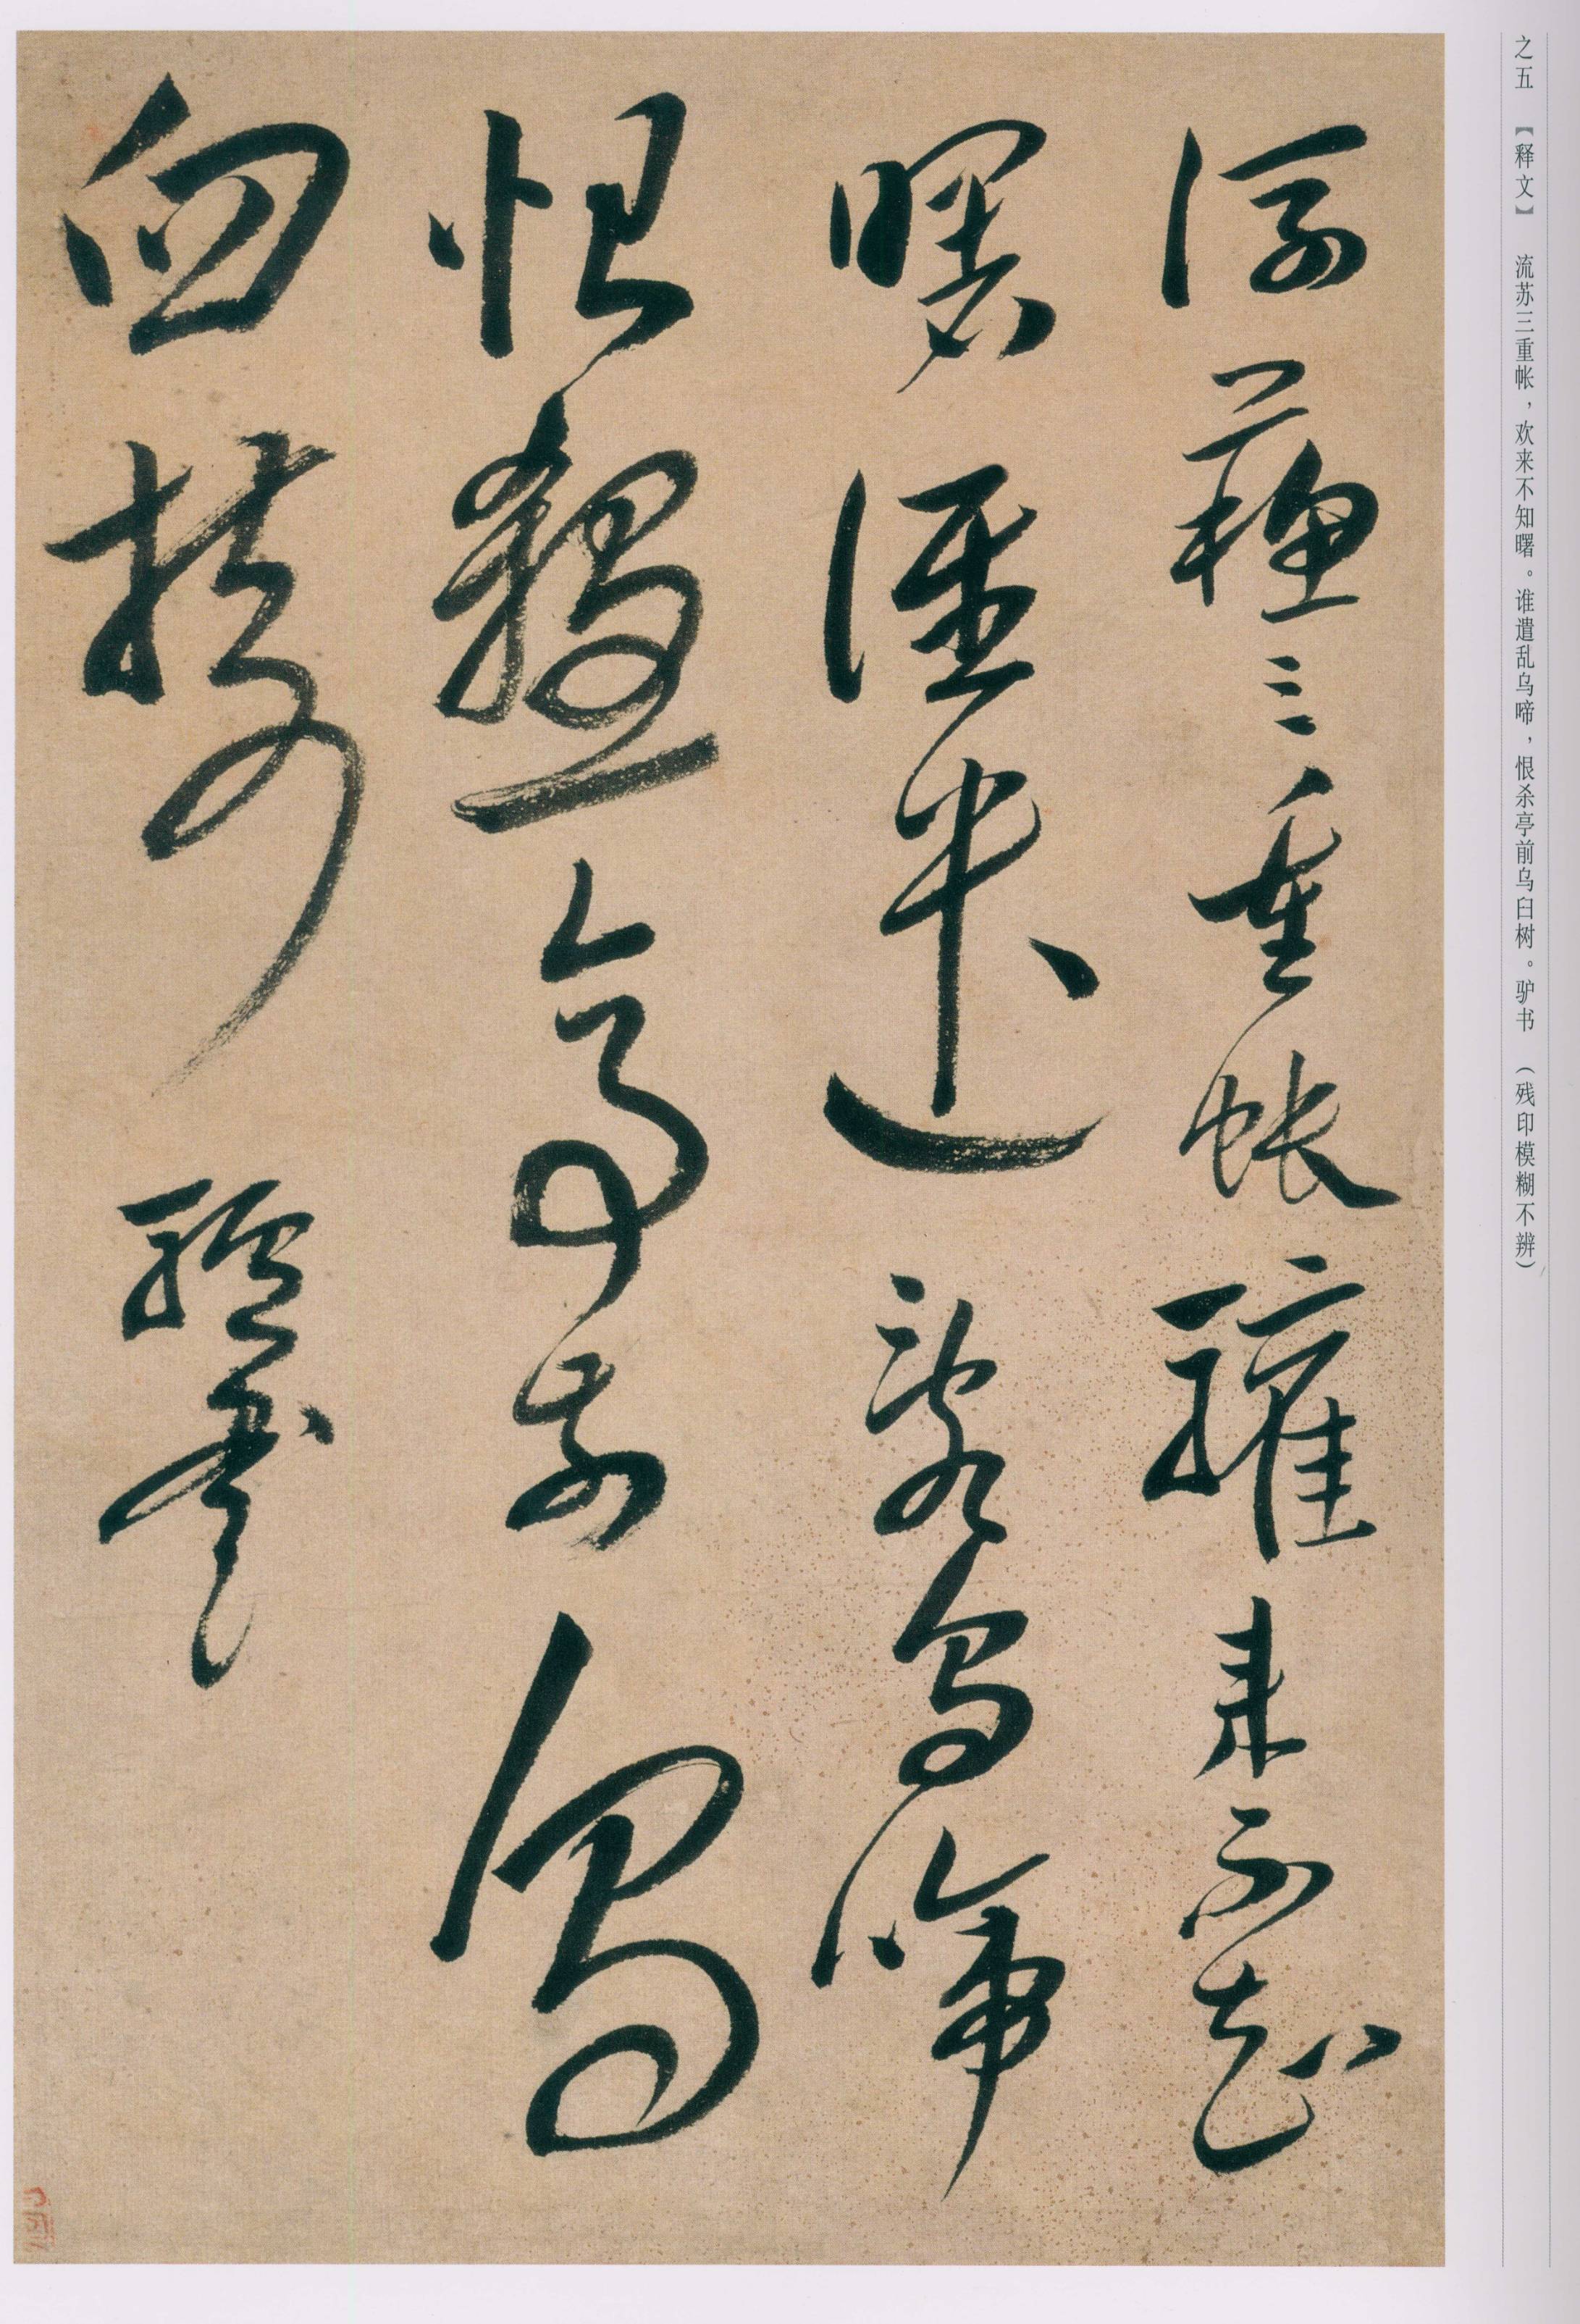 之五 【释文】 流苏三重帐，欢来不知曙。谁遣乱乌啼，恨杀亭前乌臼树。驴书 （残印模糊不辨）
流蘇三重帐驩来不知
曙谁遣乱乌啼
恨殺亭前乌
臼树 驴书